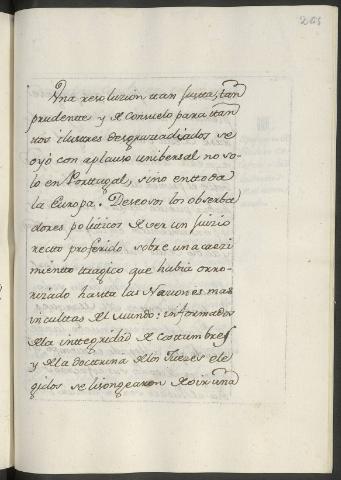 205
Una resoluzion ttan justta, ttan
prudentte y de consuelo para ttan
ttos ilusttres desgraziadiados se
oyó con aplauso unibersal no so-
lo en Porttugal, sino en ttoda
la Europa. Deseosos los observa
dores politticos de ver un juizio
rectto proferido, sobre un acezi
mientto ttragico que habia orro-
rizado hastta las Naziones mas
inculttas del mundo: informados
de la inttegridad de costtumbres
y de la docttrina de los Juezes ele
gidos se lisongearon de oir una